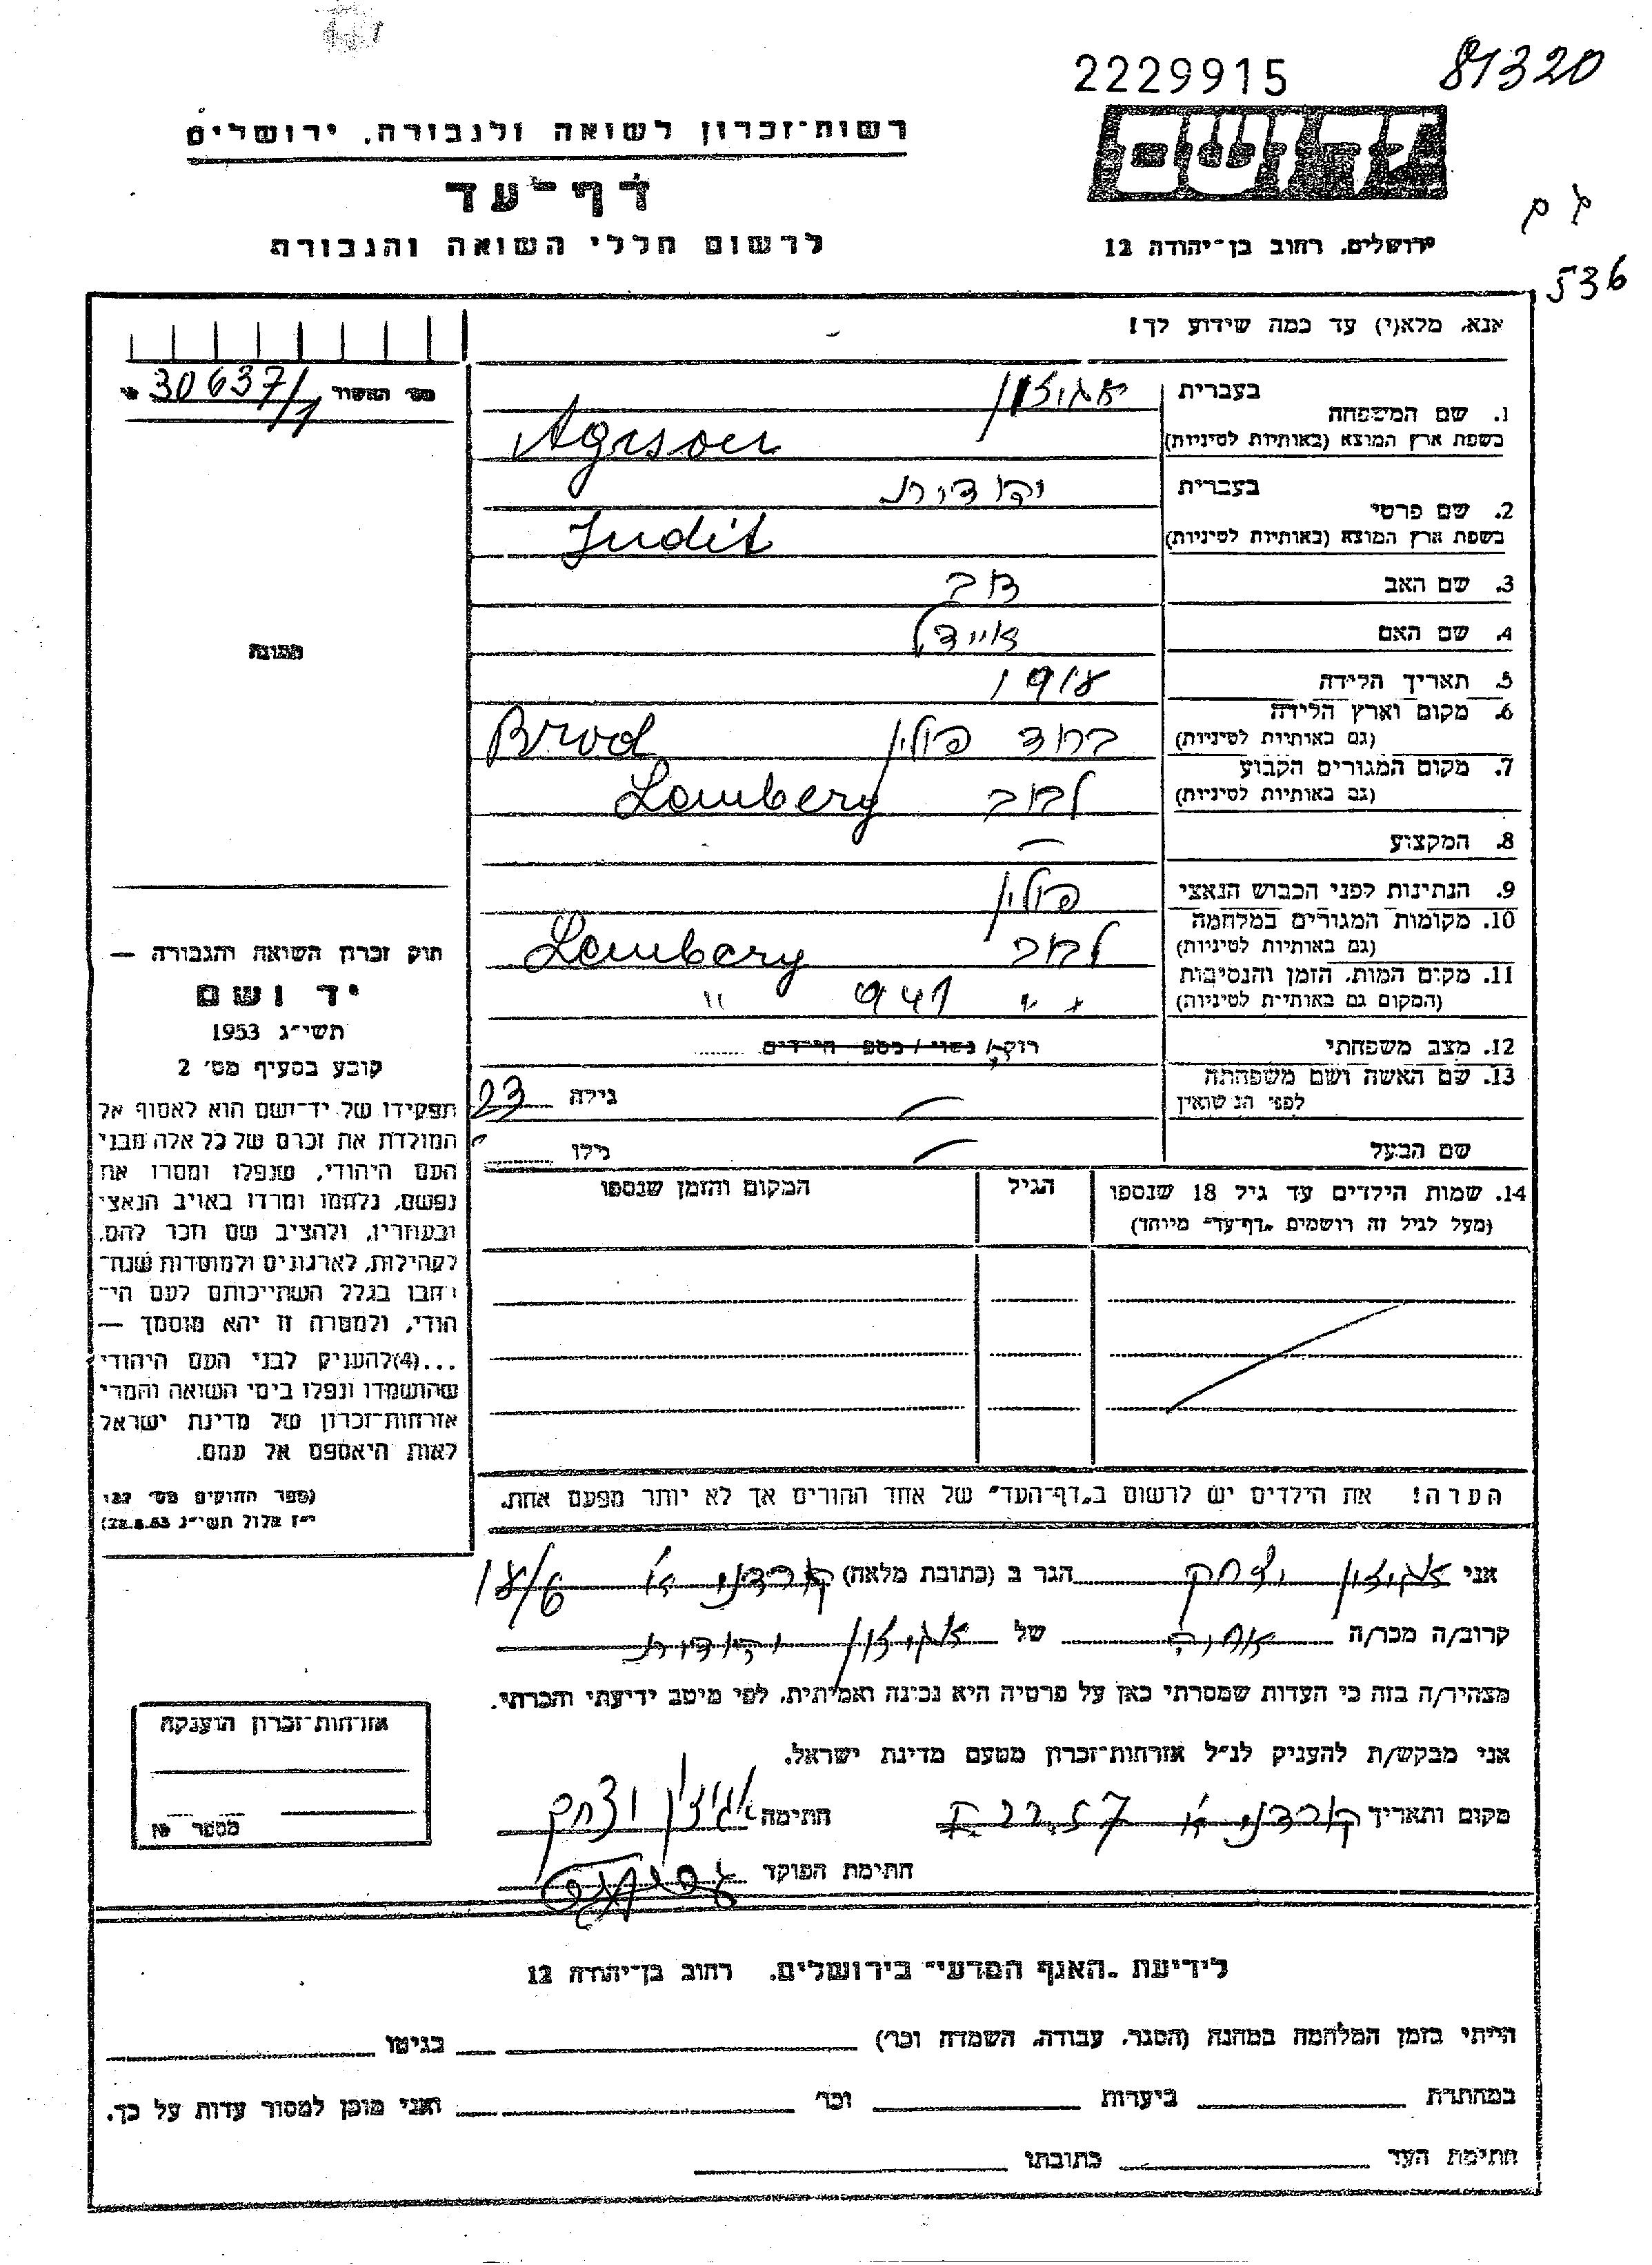 2229915
81320
רשות־זכרון לשואה ולגבורה, ירושלים
דף־עד
לרשום חללי השואה והגבורה
ירושלים, רחוב בן־יהודה 12
536
אנא, מלא(י) עד כמה שידוע לך!
30637/1
מס' האשור
1. שם המשפחה
בעברית
בשפת ארץ המוצא (באותיות לטיניות)
2. שם פרטי
בעברית יהודית
בשפת ארץ המוצא (באותיות לטיניות) Judit
3. שם האב דב
4. שם האם אייד
5. תאריך הלידה 1918
6. מקום וארץ הלידה ברוד פולין Brod
(גם באותיות לטיניות)
7. מקום המגורים הקבוע לבוב Lemberg
(גם באותיות לטיניות)
8. המקצוע —
9. הנתינות לפני הכבוש הנאצי פולין
10. מקומות המגורים במלחמה לבוב Lemberg
(גם באותיות לטיניות)
11. מקום המות, הזמן והנסיבות 941 "
(המקום גם באותיות לטיניות)
12. מצב משפחתי רווק/ נשוי / מספר הילדים
13. שם האשה ושם משפחתה
לפני הנשואין
גילה 23
שם הבעל
גילו
14. שמות הילדים עד גיל 18 שנספו
(מעל לגיל זה רושמים "דף־עד" מיוחד)
הגיל
המקום והזמן שנספו
הערה! את הילדים יש לרשום ב"דף־העד" של אחד ההורים אך לא יותר מפעם אחת.
תמונה
חוק זכרון השואה והגבורה —
יד ושם
תשי״ג 1953
קובע בסעיף מס׳ 2
תפקידו של יד־ושם הוא לאסוף אל
המולדת את זכרם של כל אלה מבני
העם היהודי, שנפלו ומסרו את
נפשם, נלחמו ומרדו באויב הנאצי
ובעוזריו, ולהציב שם וזכר להם,
לקהילות, לארגונים ולמוסדות שנח־
רבו בגלל השתייכותם לעם הי־
הודי, ולמטרה זו יהא מוסמך —
...(4) להעניק לבני העם היהודי
שהושמדו ונפלו בימי השואה והמרי
אזרחות־זכרון של מדינת ישראל
לאות היאספם אל עמם.
(ספר החוקים מס׳ 132
י״ז אלול תשי״ג 28.8.53)
אני יצחק הגר ב (כתובת מלאה) קורדני א' 18/6
קרוב/ה מכר/ה של יהודית
מצהיר/ה בזה כי העדות שמסרתי כאן על פרטיה היא נכונה ואמיתית, לפי מיטב ידיעתי והכרתי.
אני מבקש/ת להעניק לנ״ל אזרחות־זכרון מטעם מדינת ישראל.
מקום ותאריך קורדני א' חתימה יצחק
חתימת הפוקד
אזרחות־זכרון הוענקה
מספר
לידיעת "האגף המדעי" בירושלים, רחוב בן־יהודה 12
הייתי בזמן המלחמה במחנה (הסגר, עבודה, השמדה וכו׳) בגיטו
במחתרת ביערות וכו׳ ואני מוכן למסור עדות על כך.
חתימת העד כתובתו